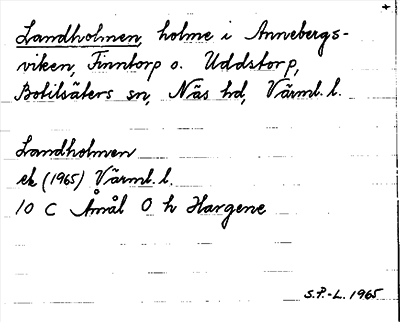 Landholmen, holme i Annebergs-
viken, Finntorp o. Uddstorp,
Botilsäters sn, Näs hd, Värml. l.
Landholmen
ek (1965) Värml. l.
10 C Åmål O h Hargene
S.P.-L. 1965